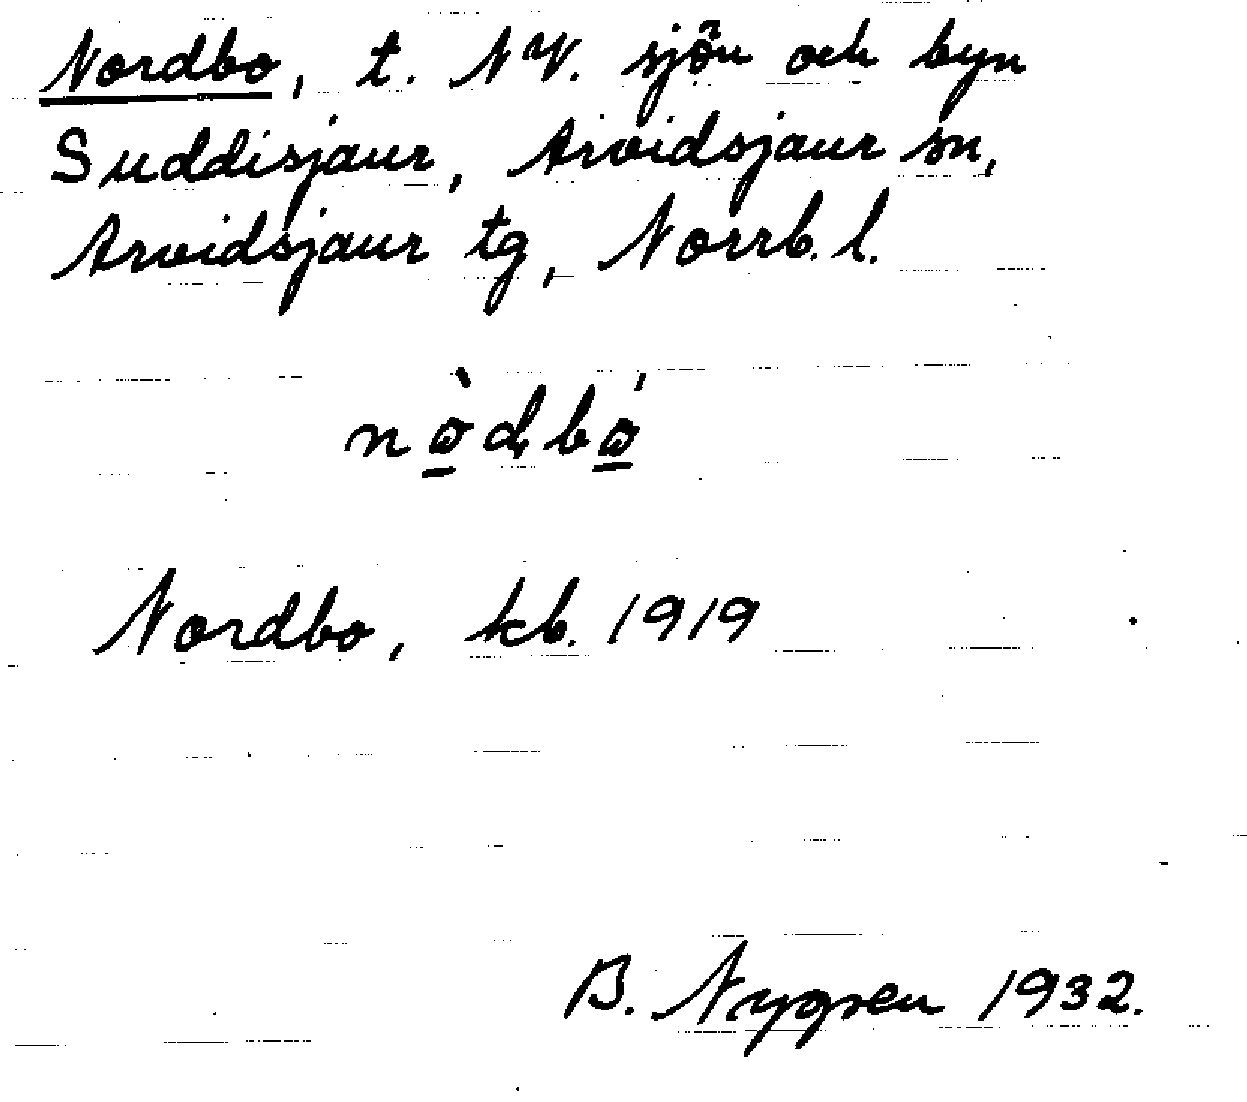 Nordbo, t. NV. sjön och byn
Suddisjaur, Arvidsjaur sn,
Arvidsjaur tg, Norrb. l.
Nordbo, kb. 1919
B. Nygren 1932.